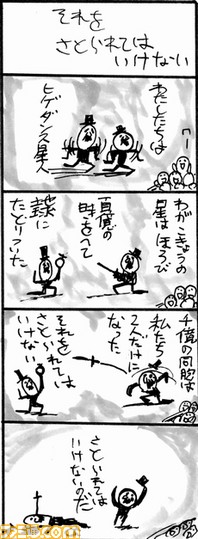 それを
さとられては
いけない
わたしたちは
ヒゲダンス星人
へー
わがこきょうの
星はほろび
百億の
時をへて
ここに
たどりついた
千億の同胞は
私たち
2人だけに
なった
それを
さとられては
いけない
さとられては
いけないのだ
ファミ通.com